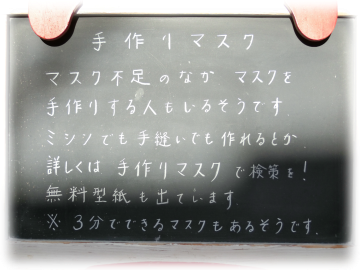 手作りマスク
マスク不足のなか マスクを
手作りする人もいるそうです
ミシンでも手縫いでも作れるとか
詳しくは 手作りマスク で検策を!
無料型紙も出ています
※ 3分でできるマスクもあるそうです.